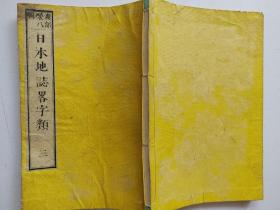 日本地誌畧字類 三